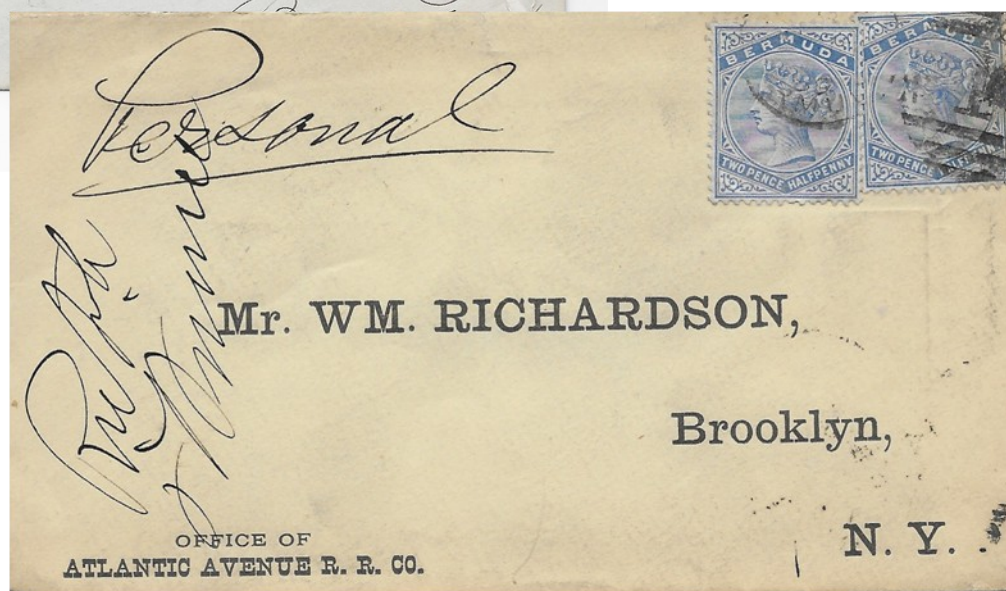 Personal
BERMUDA
TWO PENCE HALFPENNY
BERMUDA
TWO PENCE HALFPENNY
Mr. WM. RICHARDSON,
Brooklyn,
N. Y.
OFFICE OF
ATLANTIC AVENUE R. R. CO.